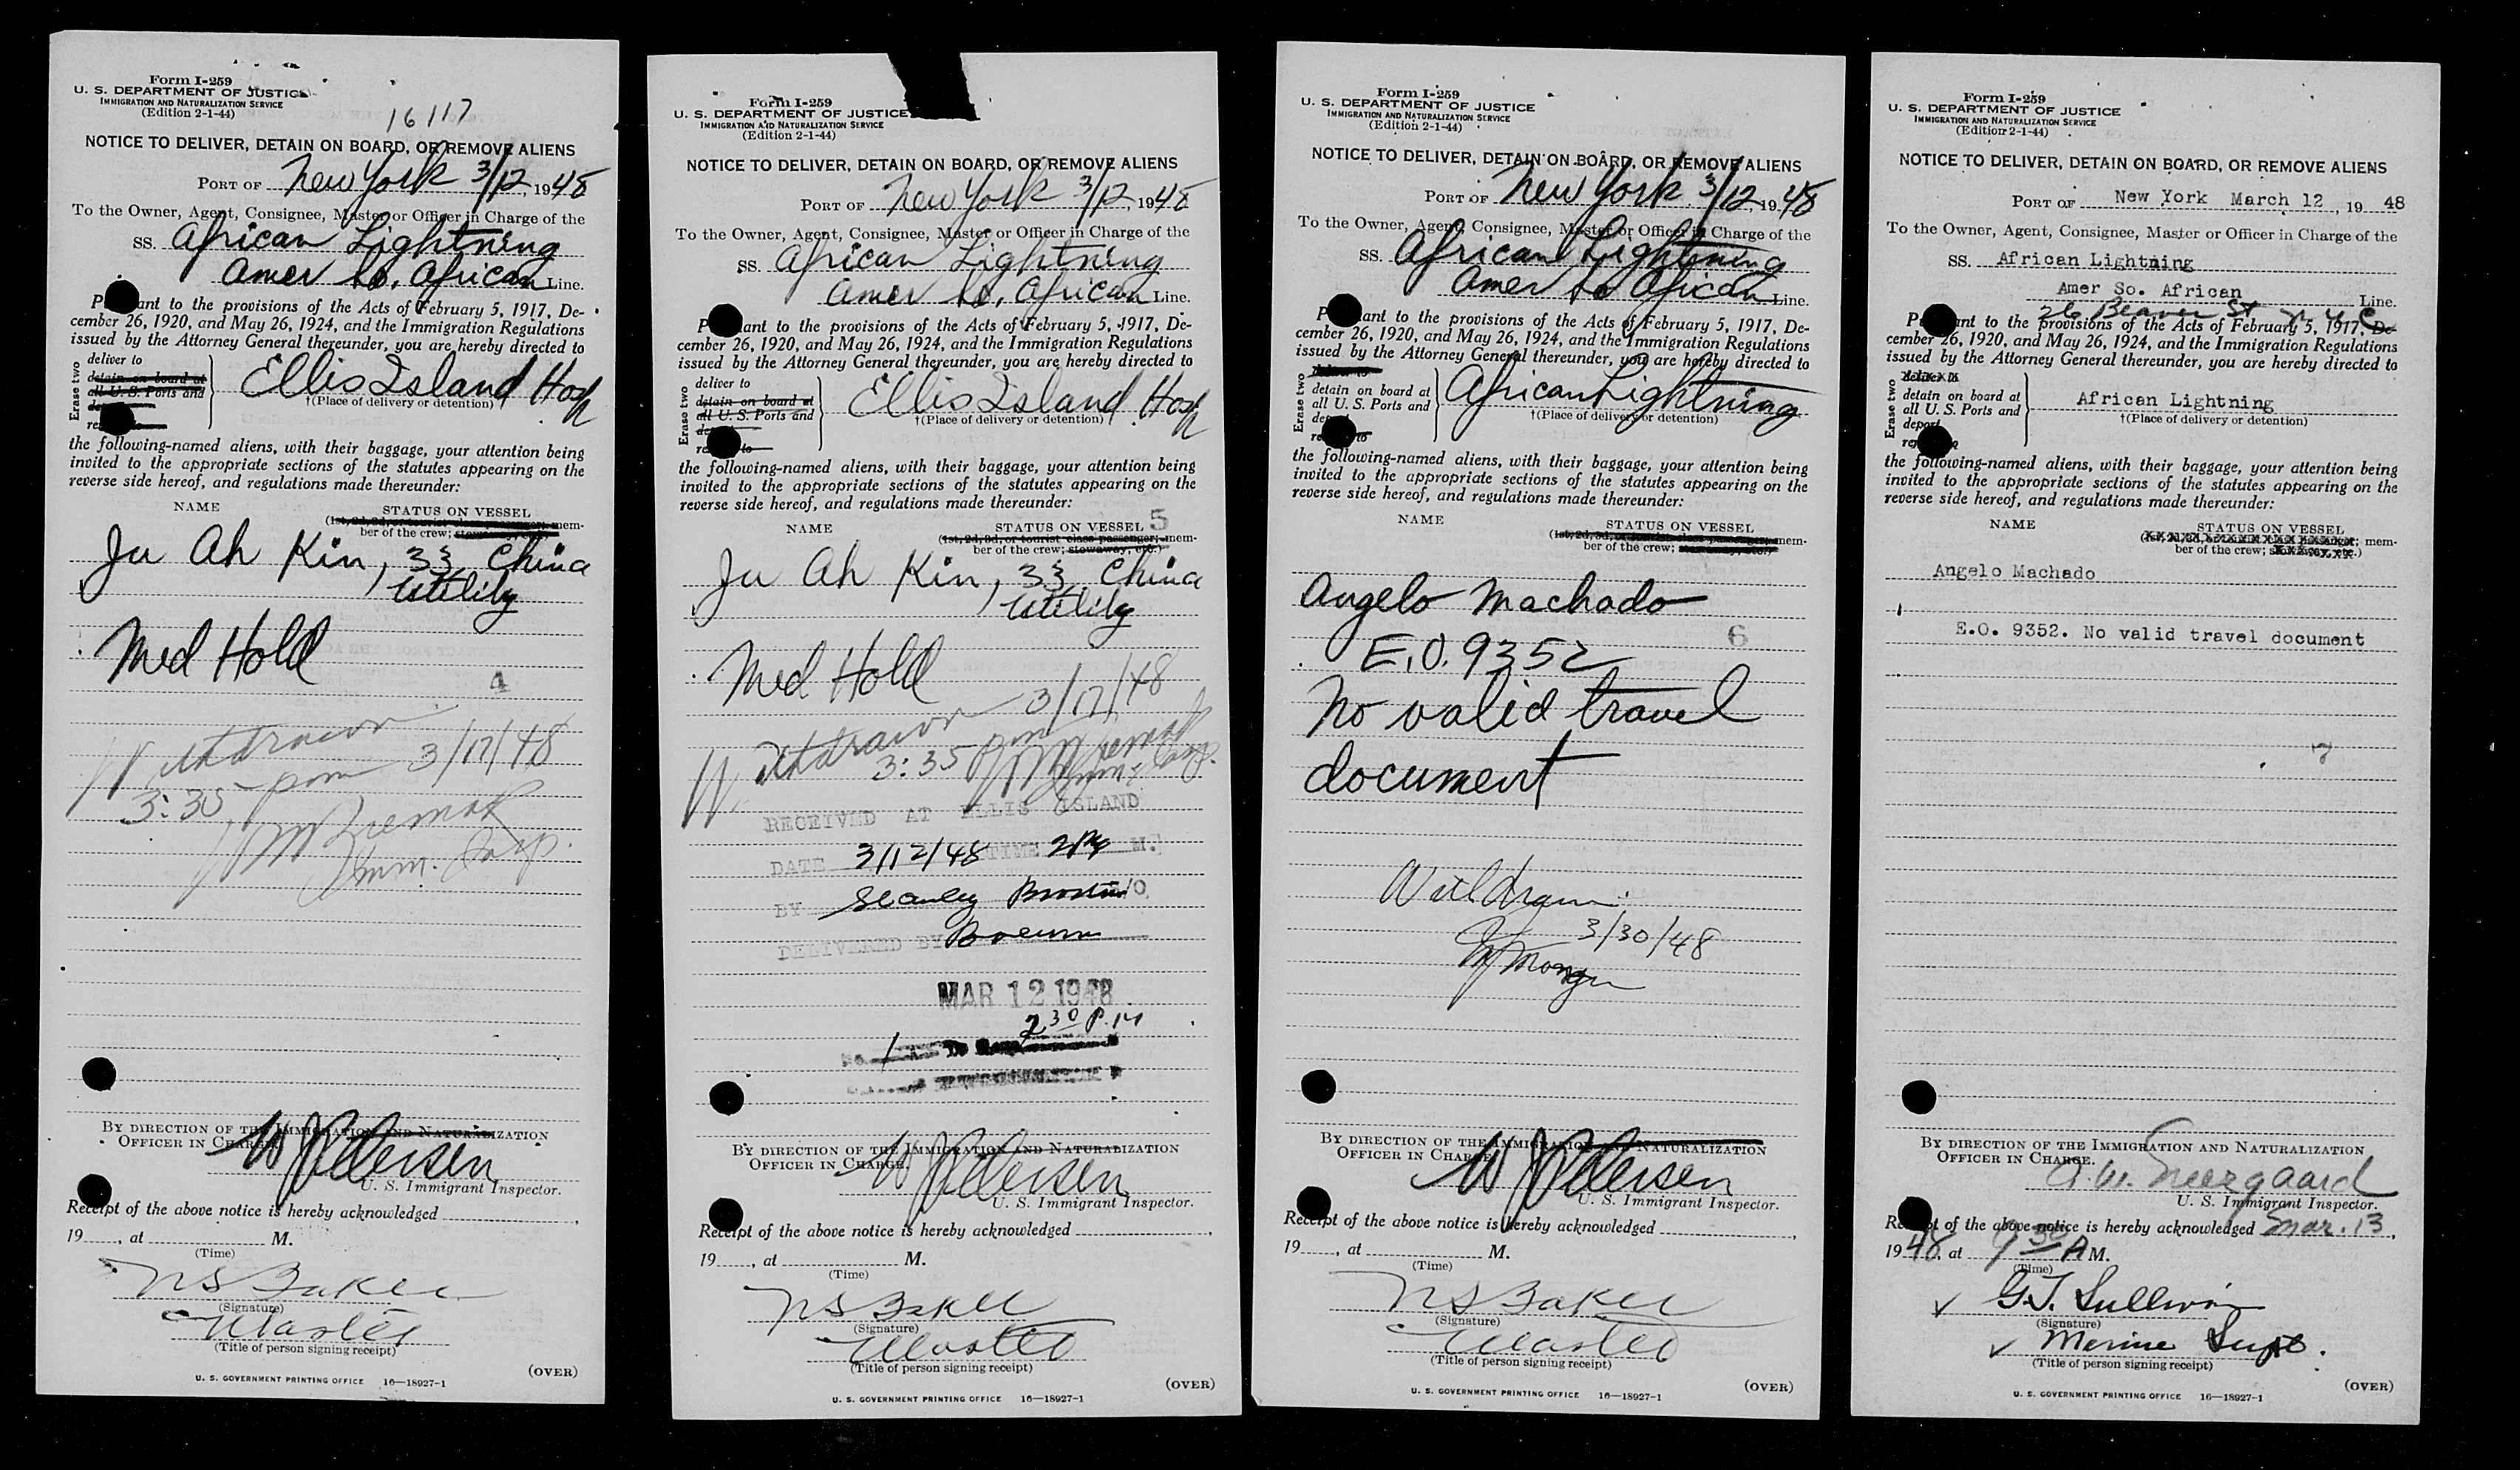 Form I-259
U. S. DEPARTMENT OF JUSTICE
IMMIGRATION AND NATURALIZATION SERVICE
(Edition 2-1-44)
16117
NOTICE TO DELIVER, DETAIN ON BOARD, OR REMOVE ALIENS
PORT OF New York 3/12, 1948
To the Owner, Agent, Consignee, Master or Officer in Charge of the
SS. African Lightning
Amer So. African Line.
Pursuant to the provisions of the Acts of February 5, 1917, De-
cember 26, 1920, and May 26, 1924, and the Immigration Regulations
issued by the Attorney General thereunder, you are hereby directed to
Erase two
deliver to
detain on board at
all U. S. Ports and
Ellis Island Hosp
†(Place of delivery or detention)
the following-named aliens, with their baggage, your attention being
invited to the appropriate sections of the statutes appearing on the
reverse side hereof, and regulations made thereunder:
NAME STATUS ON VESSEL
(1st, 2d, 3d, or tourist class passenger; mem-
ber of the crew;
Ju Ah Kin, 33 China
Utility
Med Hold
4
Withdrawn
3/17/48
3:35 pm
BY DIRECTION OF THE IMMIGRATION AND NATURALIZATION
OFFICER IN CHARGE.
W J Pedersen
U. S. Immigrant Inspector.
Receipt of the above notice is hereby acknowledged
19, at M.
(Time)
NS Baker
(Signature)
Master
(Title of person signing receipt)
(OVER)
U. S. GOVERNMENT PRINTING OFFICE 16—18927-1
Form I-259
U. S. DEPARTMENT OF JUSTICE
IMMIGRATION AND NATURALIZATION SERVICE
(Edition 2-1-44)
NOTICE TO DELIVER, DETAIN ON BOARD, OR REMOVE ALIENS
PORT OF New York 3/12, 1948
To the Owner, Agent, Consignee, Master or Officer in Charge of the
SS. African Lightning
Amer So. African Line.
Pursuant to the provisions of the Acts of February 5, 1917, De-
cember 26, 1920, and May 26, 1924, and the Immigration Regulations
issued by the Attorney General thereunder, you are hereby directed to
Erase two
deliver to
detain on board at
all U. S. Ports and
Ellis Island Hosp
†(Place of delivery or detention)
the following-named aliens, with their baggage, your attention being
invited to the appropriate sections of the statutes appearing on the
reverse side hereof, and regulations made thereunder:
NAME STATUS ON VESSEL 5
(1st, 2d, 3d, or tourist class passenger; mem-
ber of the crew; stowaway, etc.)
Ju Ah Kin, 33 China
Utility
Med Hold
3/17/48
Withdrawn
3:35 pm
RECEIVED AT ELLIS ISLAND
DATE 3/12/48 TIME 2 PM M.
BY Stanley
DELIVERED BY
MAR 12 1948
2 30 P.M
1
BY DIRECTION OF THE IMMIGRATION AND NATURALIZATION
OFFICER IN CHARGE.
W J Pedersen
U. S. Immigrant Inspector.
Receipt of the above notice is hereby acknowledged
19, at M.
(Time)
NS Baker
(Signature)
Master
(Title of person signing receipt)
(OVER)
U. S. GOVERNMENT PRINTING OFFICE 16—18927-1
Form I-259
U. S. DEPARTMENT OF JUSTICE
IMMIGRATION AND NATURALIZATION SERVICE
(Edition 2-1-44)
NOTICE TO DELIVER, DETAIN ON BOARD, OR REMOVE ALIENS
PORT OF New York 3/12 1948
To the Owner, Agent, Consignee, Master or Officer in Charge of the
SS. African Lightning
Amer So African Line.
Pursuant to the provisions of the Acts of February 5, 1917, De-
cember 26, 1920, and May 26, 1924, and the Immigration Regulations
issued by the Attorney General thereunder, you are hereby directed to
Erase two
detain on board at
all U. S. Ports and
African Lightning
†(Place of delivery or detention)
the following-named aliens, with their baggage, your attention being
invited to the appropriate sections of the statutes appearing on the
reverse side hereof, and regulations made thereunder:
NAME STATUS ON VESSEL
(1st, 2d, 3d, or tourist class passenger; mem-
ber of the crew;
Angelo Machado
E.O. 9352 6
No valid travel
document
Withdrawn
3/30/48
BY DIRECTION OF THE IMMIGRATION AND NATURALIZATION
OFFICER IN CHARGE
W J Pedersen
U. S. Immigrant Inspector.
Receipt of the above notice is hereby acknowledged
19, at M.
(Time)
NS Baker
(Signature)
Master
(Title of person signing receipt)
(OVER)
U. S. GOVERNMENT PRINTING OFFICE 16—18927-1
Form I-259
U. S. DEPARTMENT OF JUSTICE
IMMIGRATION AND NATURALIZATION SERVICE
(Edition 2-1-44)
NOTICE TO DELIVER, DETAIN ON BOARD, OR REMOVE ALIENS
PORT OF New York March 12, 19 48
To the Owner, Agent, Consignee, Master or Officer in Charge of the
SS. African Lightning
Amer So. African Line.
26 Beaver St N.Y.C
Pursuant to the provisions of the Acts of February 5, 1917, De-
cember 26, 1920, and May 26, 1924, and the Immigration Regulations
issued by the Attorney General thereunder, you are hereby directed to
Erase two
deliver to
detain on board at
all U. S. Ports and
deport
African Lightning
†(Place of delivery or detention)
the following-named aliens, with their baggage, your attention being
invited to the appropriate sections of the statutes appearing on the
reverse side hereof, and regulations made thereunder:
NAME STATUS ON VESSEL
mem-
ber of the crew; etc.)
Angelo Machado
E.O. 9352. No valid travel document
7
BY DIRECTION OF THE IMMIGRATION AND NATURALIZATION
OFFICER IN CHARGE.
A.W. Neergaard
U. S. Immigrant Inspector.
Receipt of the above notice is hereby acknowledged Mar. 13,
1948, at 9 30 A M.
(Time)
G.T. Sullivan
(Signature)
Marine Supt.
(Title of person signing receipt)
(OVER)
U. S. GOVERNMENT PRINTING OFFICE 16—18927-1